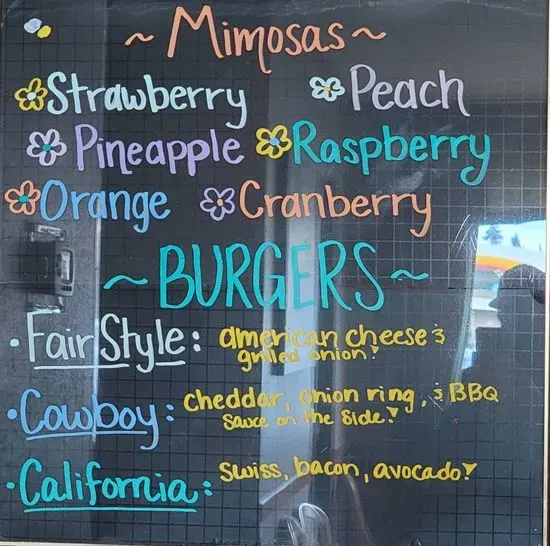 ~ Mimosas ~
Strawberry Peach
Pineapple Raspberry
Orange Cranberry
~ BURGERS ~
• Fair Style: american cheese &
grilled onion!
• Cowboy: cheddar, onion ring, & BBQ
sauce on the side!
• California: swiss, bacon, avocado!